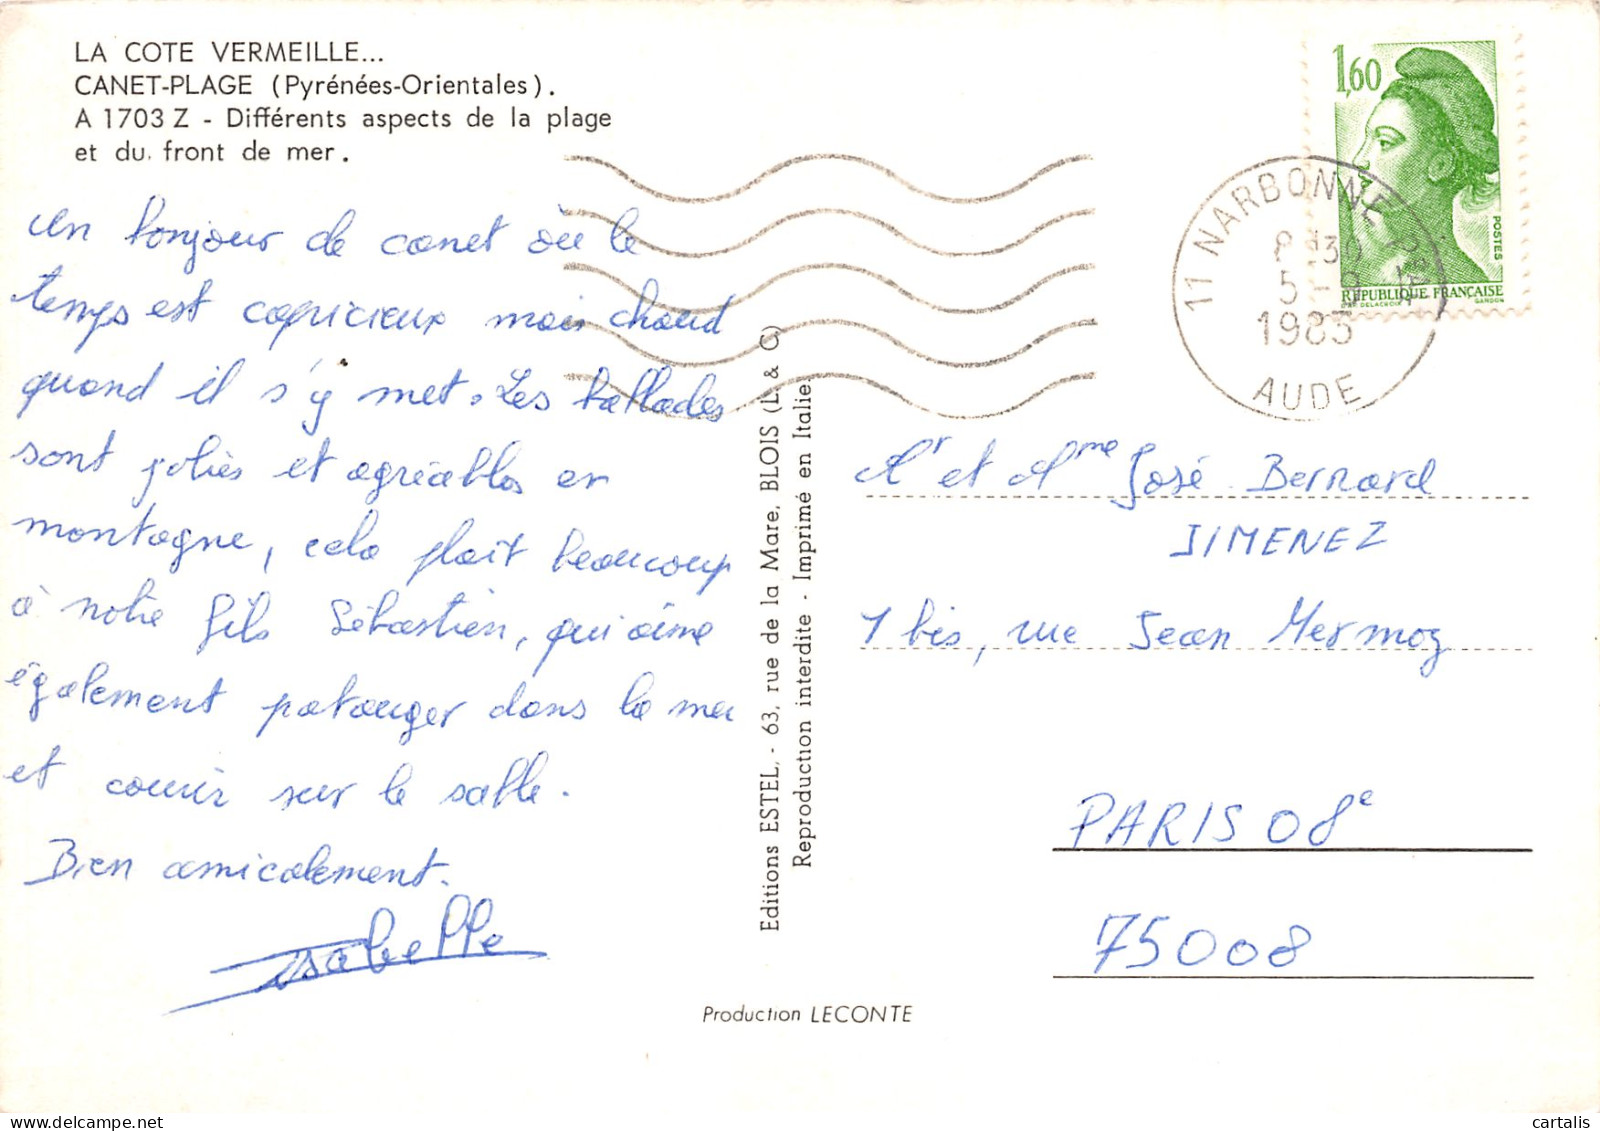 LA COTE VERMEILLE...
CANET-PLAGE (Pyrénées-Orientales).
A 1703 Z - Différents aspects de la plage
et du front de mer.
Un bonjour de canet où le
temps est capricieux mais chaud
quand il s'y met. Les ballades
sont jolies et agréables en
montagne, cela plait beaucoup
à notre fils Sébastien, qui aime
également patauger dans la mer
et courir sur le sable.
Bien amicalement.
Isabelle
Editions ESTEL, - 63, rue de la Mare, BLOIS (L. & C.)
Reproduction interdite - Imprimé en Italie.
Production LECONTE
1,60
POSTES
REPUBLIQUE FRANÇAISE
D'AP. DELACROIX GANDON
11 NARBONNE
1983
AUDE
Mr et Mme José Bernard
JIMENEZ
1 bis, rue Jean Mermoz
PARIS 08e
75008
cartalis